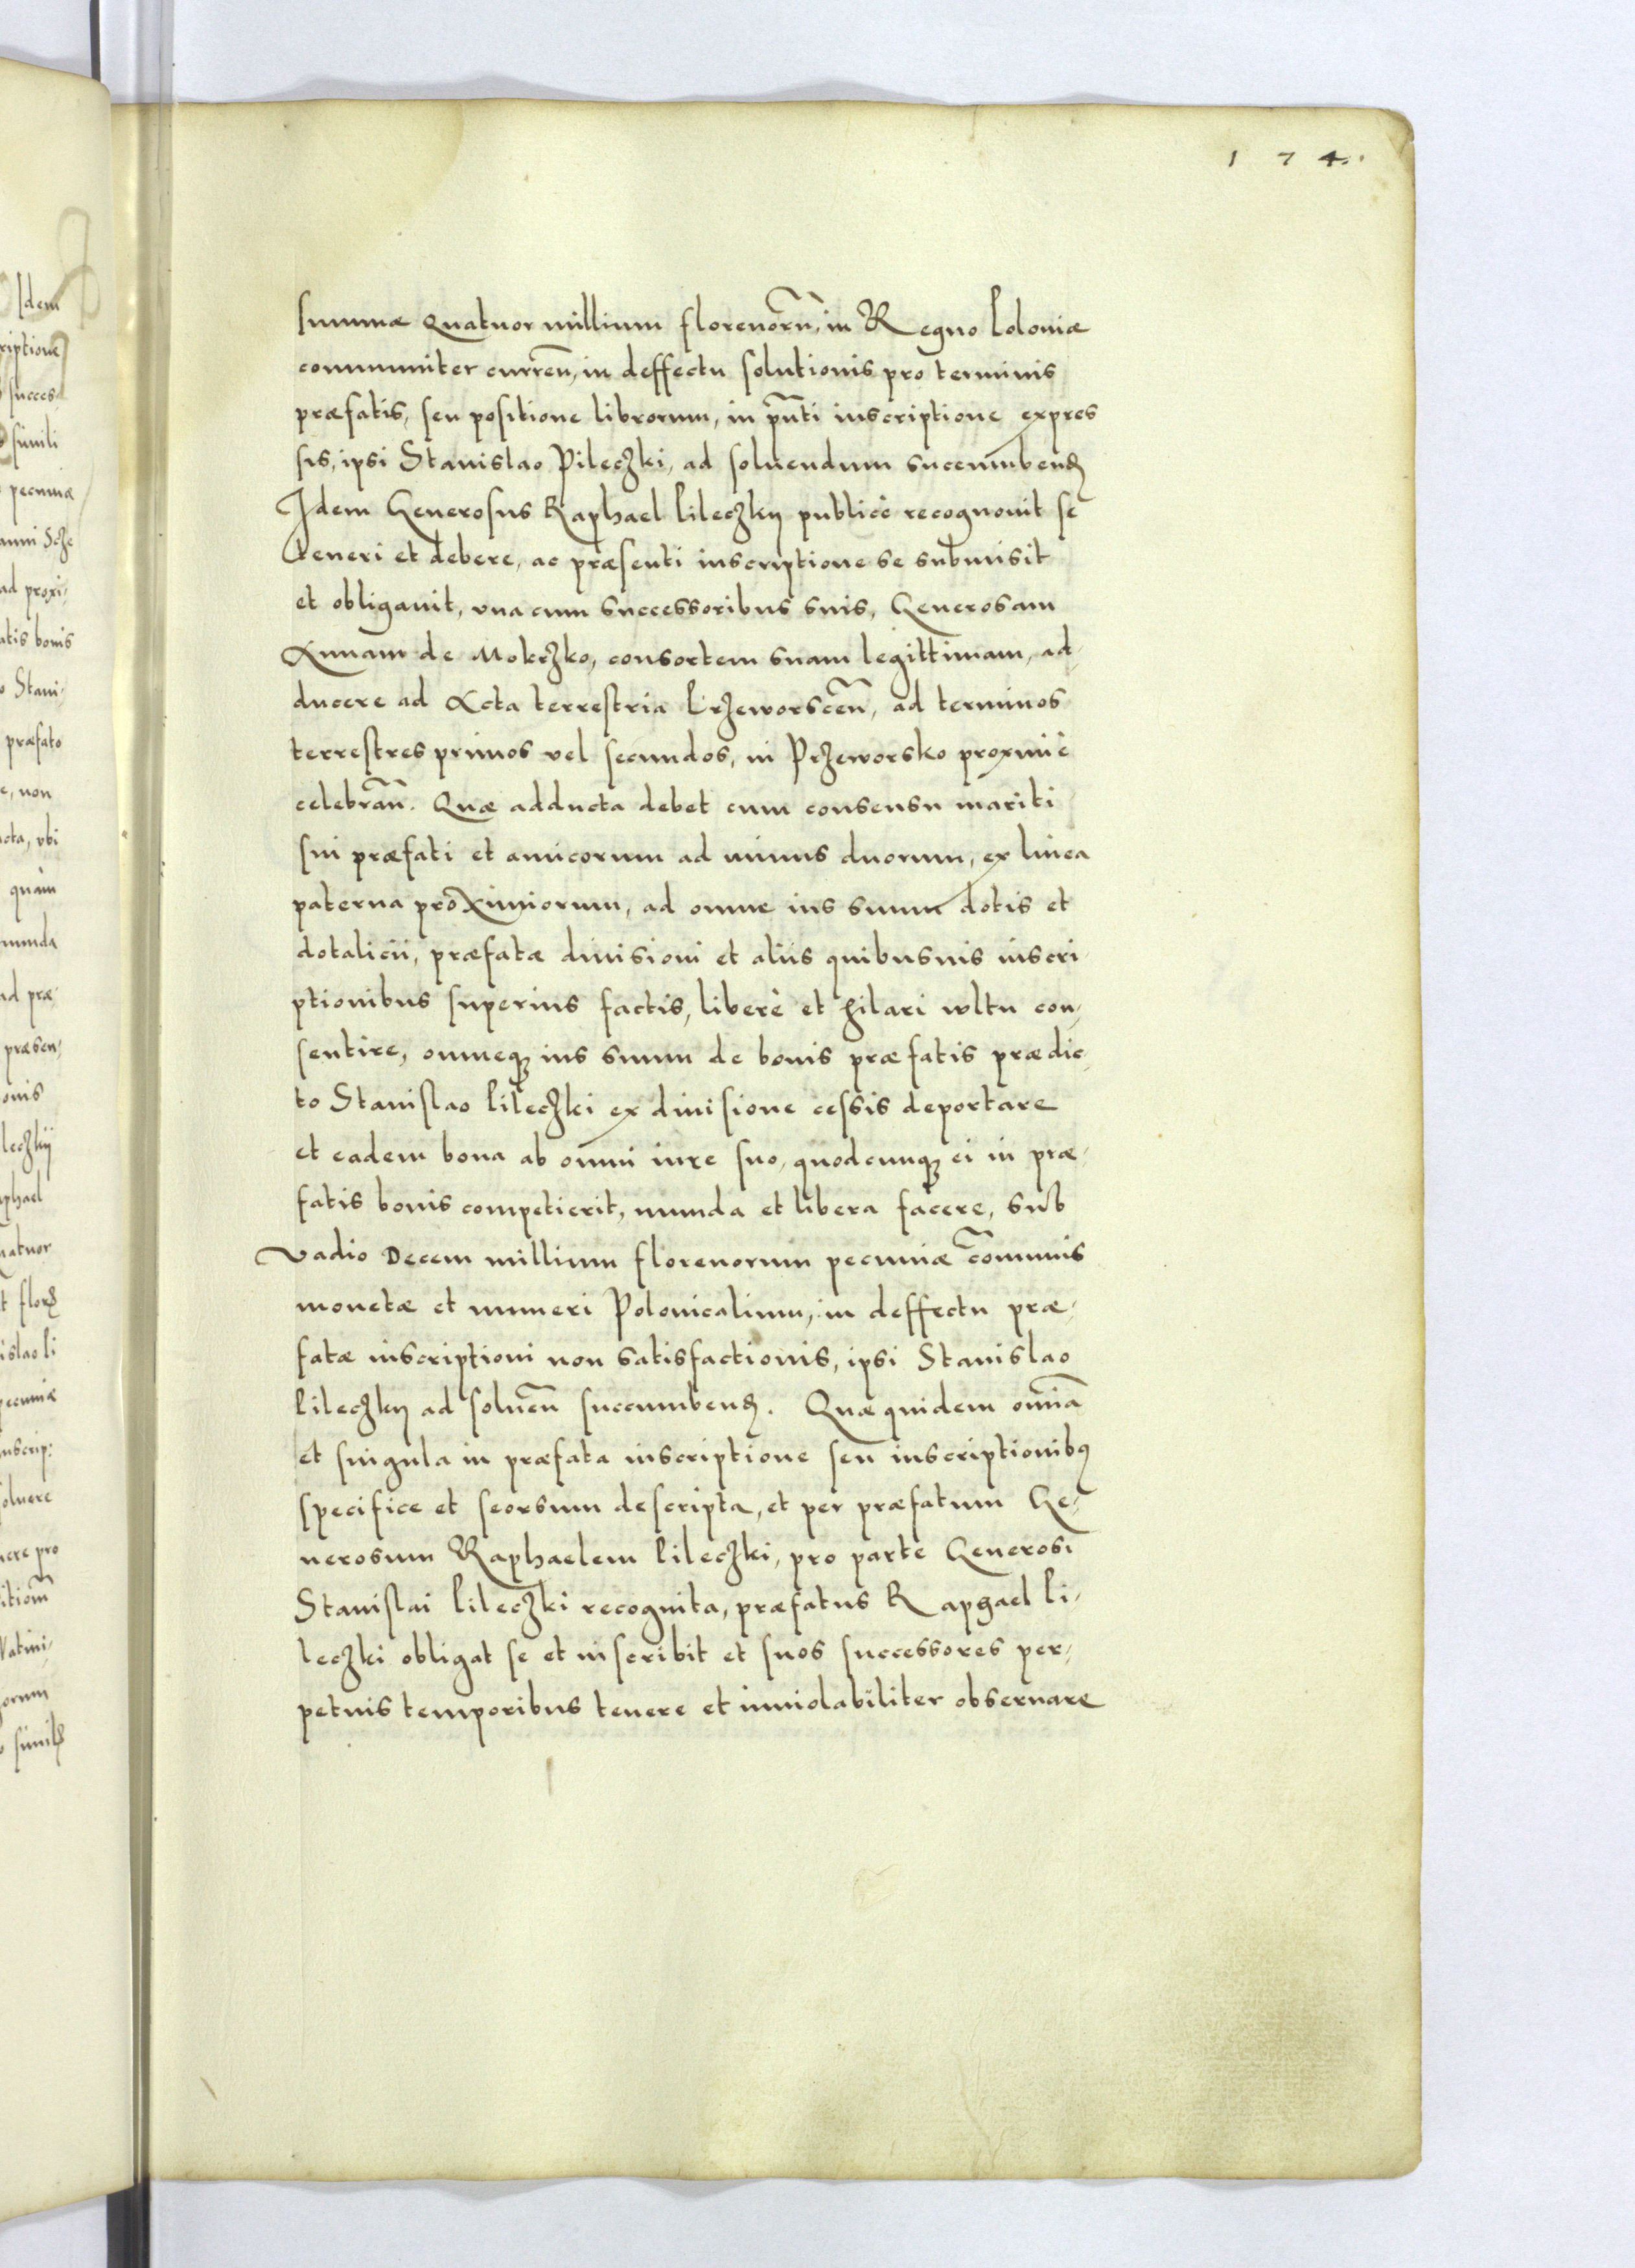 174.
summæ Quatuor millium florenorũ, in Regno Poloniæ
communiter curreñ, in deffectu solutionis pro terminis
præfatis, seu positione librorum, in pñti inscriptione expres
sis, ipsi Stanislao Pileczki, ad soluendum succumbenđ
Idem Generosus Raphael Pileczky publicè recognouit se
teneri et debere, ac præsenti inscriptione se submisit
et obligauit, vna cum successoribus suis, Generosam
Annam de Mokrzko, consortem suam legittimam, ad-
ducere ad Acta terrestria Przeworsceñ, ad terminos
terrestres primos vel secundos, in Przeworsko proximè
celebrañ. Quæ adducta debet cum consensu mariti
sui præfati et amicorum ad minus duorum, ex linea
paterna proximiorum, ad omne ius suum dotis et
dotalicii, præfatæ diuisioni et aliis quibusuis inscri-
ptionibus superius factis, liberè et hilari wltu con-
sentire, omneqȝ ius suum de bonis præfatis prædic-
to Stanislao Pileczki ex diuisione cessis deportare
et eadem bona ab omni iure suo, quodcunqȝ ei in præ-
fatis bonis competierit, munda et libera facere, sub
vadio Decem millium florenorum pecuniæ cõmunis
monetæ et numeri Polonicalium, in deffectu præ-
fatæ inscriptioni non satisfactionis, ipsi Stanislao
Pileczky ad solueñ succumbenđ. Quæquidem om̃ia
et singula in præfata inscriptione seu inscriptionibꝰ
specifice et seorsum descripta, et per præfatum Ge-
nerosum Raphaelem Pileczki, pro parte Generosi
Stanislai Pileczki recognita, præfatus Raphael Pi-
leczki obligat se et inscribit et suos successores per-
petuis temporibus tenere et inuiolabiliter obseruare